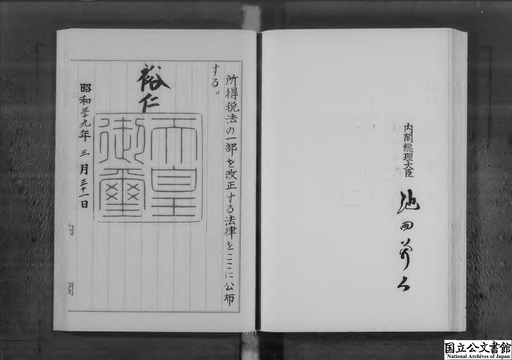 内閣総理大臣
池田勇人
所得税法の一部を改正する法律をここに公布
する。
裕仁
天皇
御璽
昭和三十九年三月三十一日
国立公文書館
National Archives of Japan